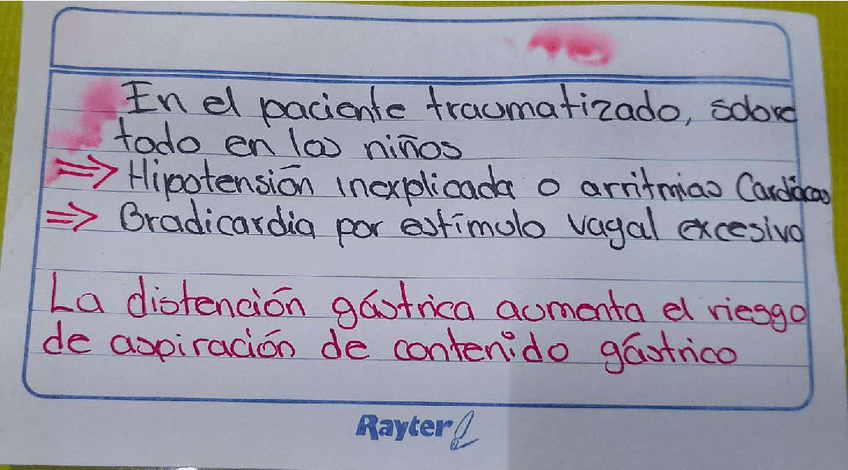 En el paciente traumatizado, sobre
todo en los niños
⇒ Hipotensión inexplicada o arritmias Cardiacas
⇒ Bradicardia por estímulo vagal excesivo
La distención gástrica aumenta el riesgo
de aspiración de contenido gástrico
Rayter